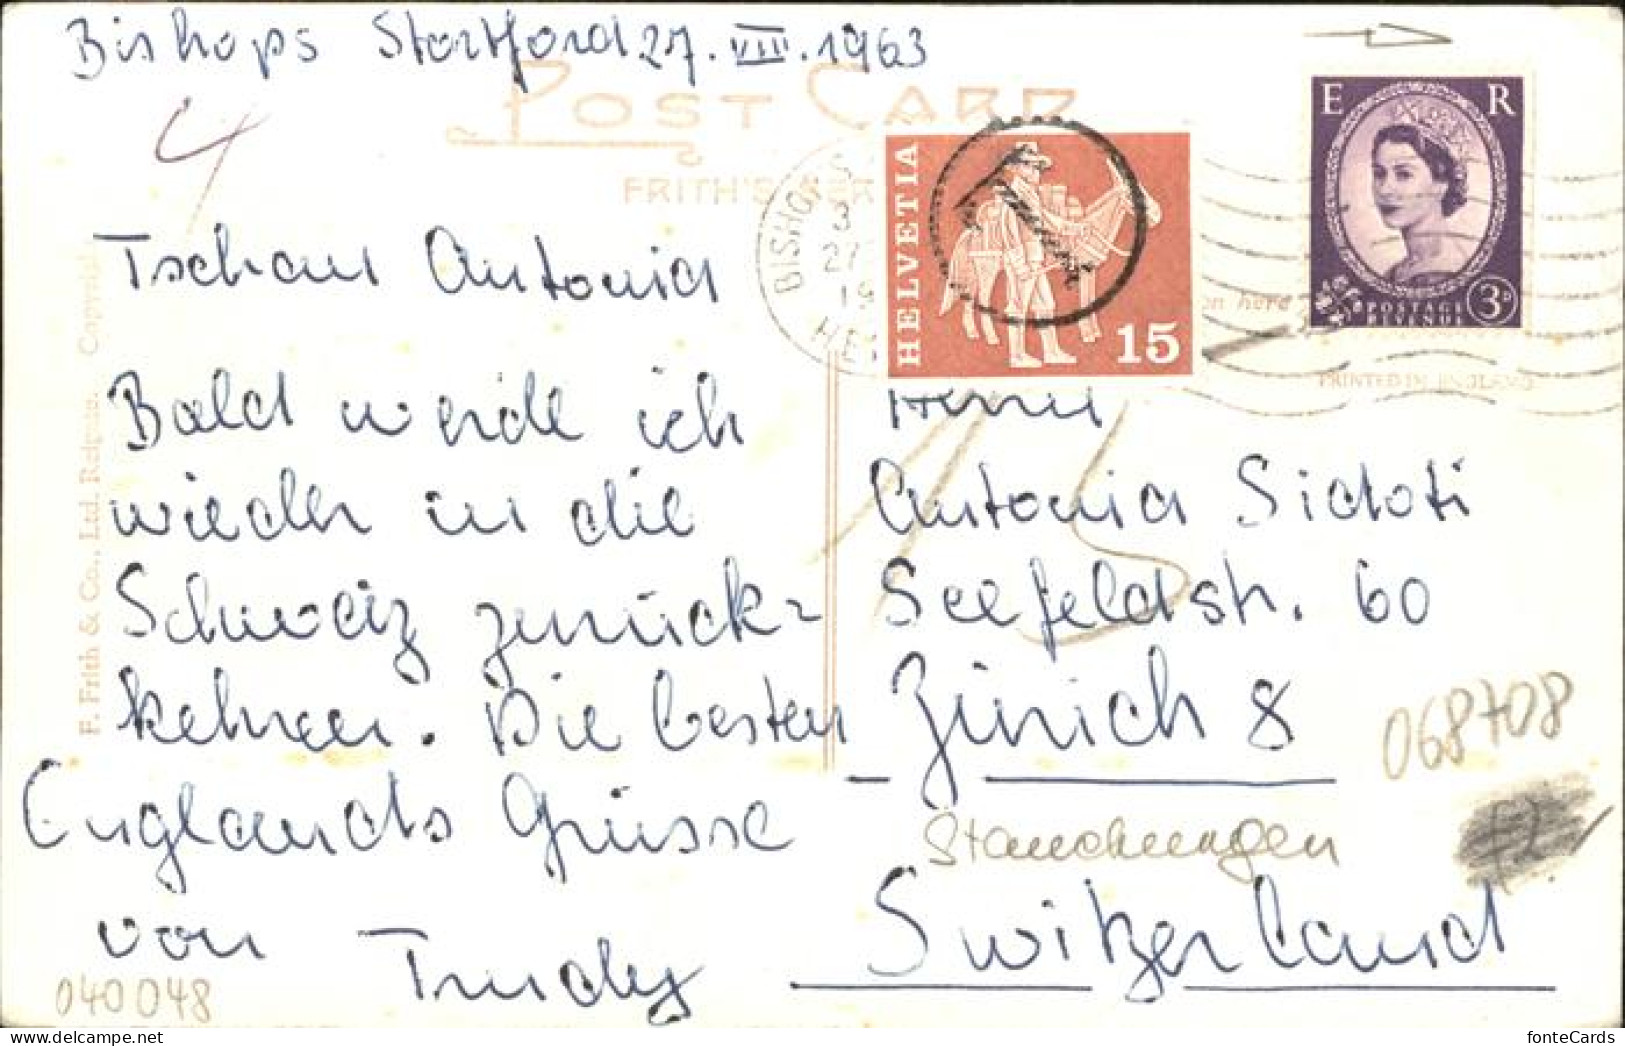 Bishops Stortford 27. VIII. 1963
POST CARD
FRITH'S SER
4
Tschau Antonia
Bald werde ich
wieder in die
Schweiz zurück-
kehren. Die besten
Englands Grüsse
von Trudy
040048
F. Frith & Co., Ltd. Reigate. Copyright
BISHOP S
3
27
19
HE
HELVETIA
15
E R
POSTAGE
REVENUE
3D
on here
PRINTED IN ENGLAND
15
Antonia Sidoti
Seefeldstr. 60
Zürich 8
068708
Stauchungen
Switzerland
fonteCards